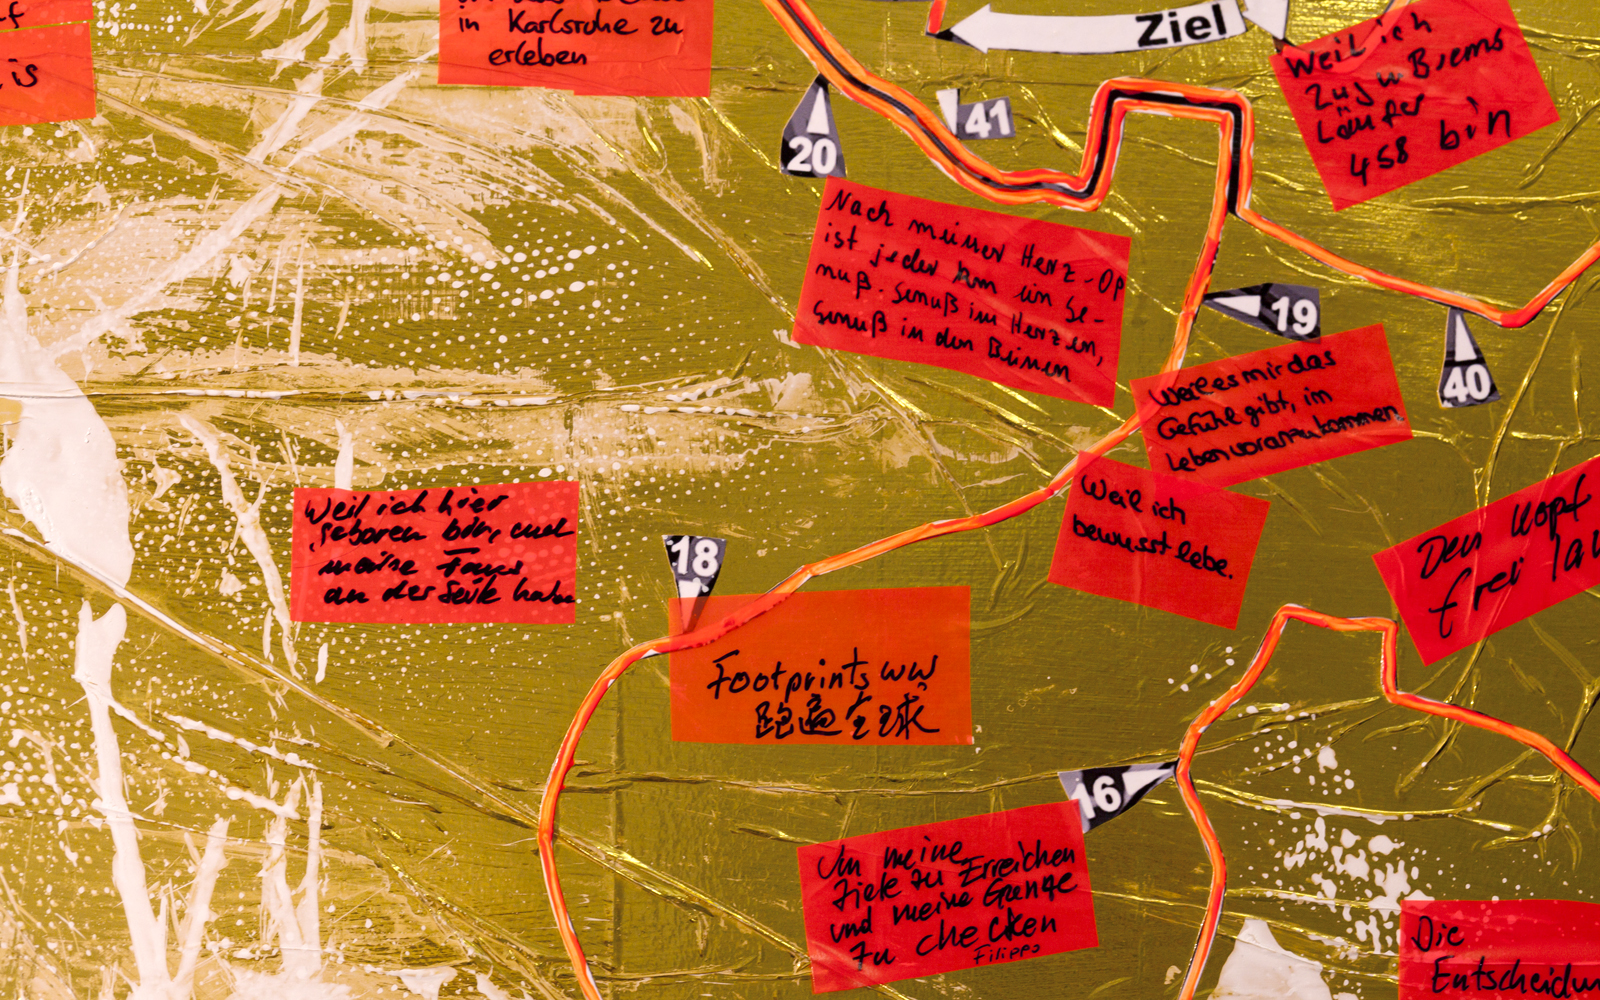 is
in Karlsruhe zu
erleben
Ziel
Weil ich
Zug u Brems
Läufer
458 bin
20
41
Nach meiner Herz-Op
ist jeder km ein Ge-
nuß. Genuß im Herzen,
Genuß in den Beinen
19
40
Weil es mir das
Gefühl gibt, im
Leben voranzukommen.
Weil ich
bewusst lebe.
Den Kopf
frei
Weil ich hier
geboren bin, und
meine Fans
an der Seite habe
18
Footprints ww
跑遍全球
16
Um meine
Ziele zu Erreichen
und meine Grenze
zu checken
Filippo
Die
Entscheidun